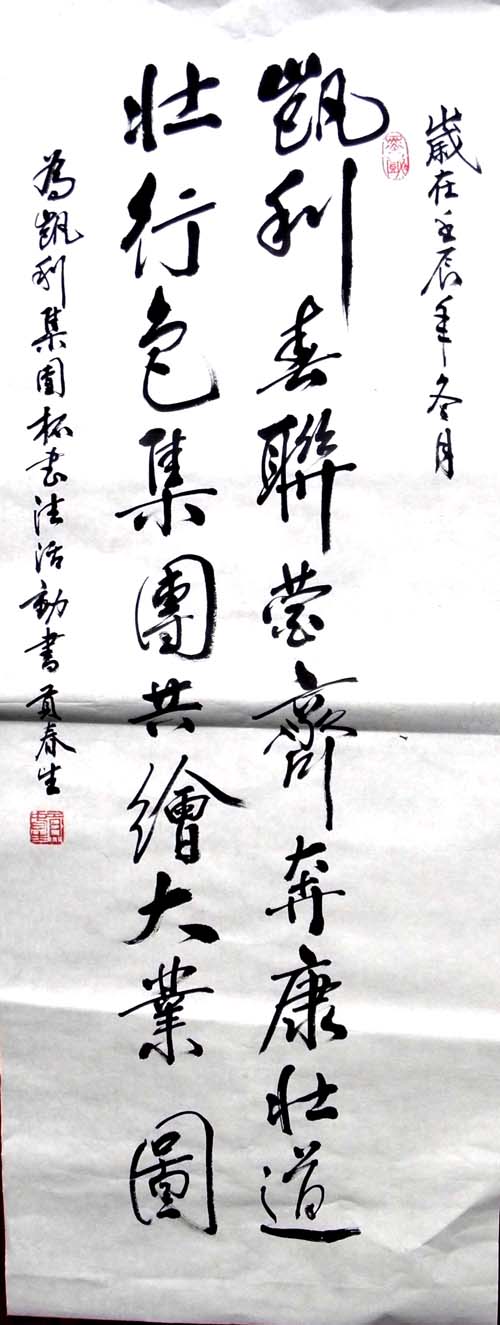 歲在壬辰年冬月
凱利春聯營齊奔康壯道
壯行色集團共繪大業圖
為凱利集團杯书法活動書春生